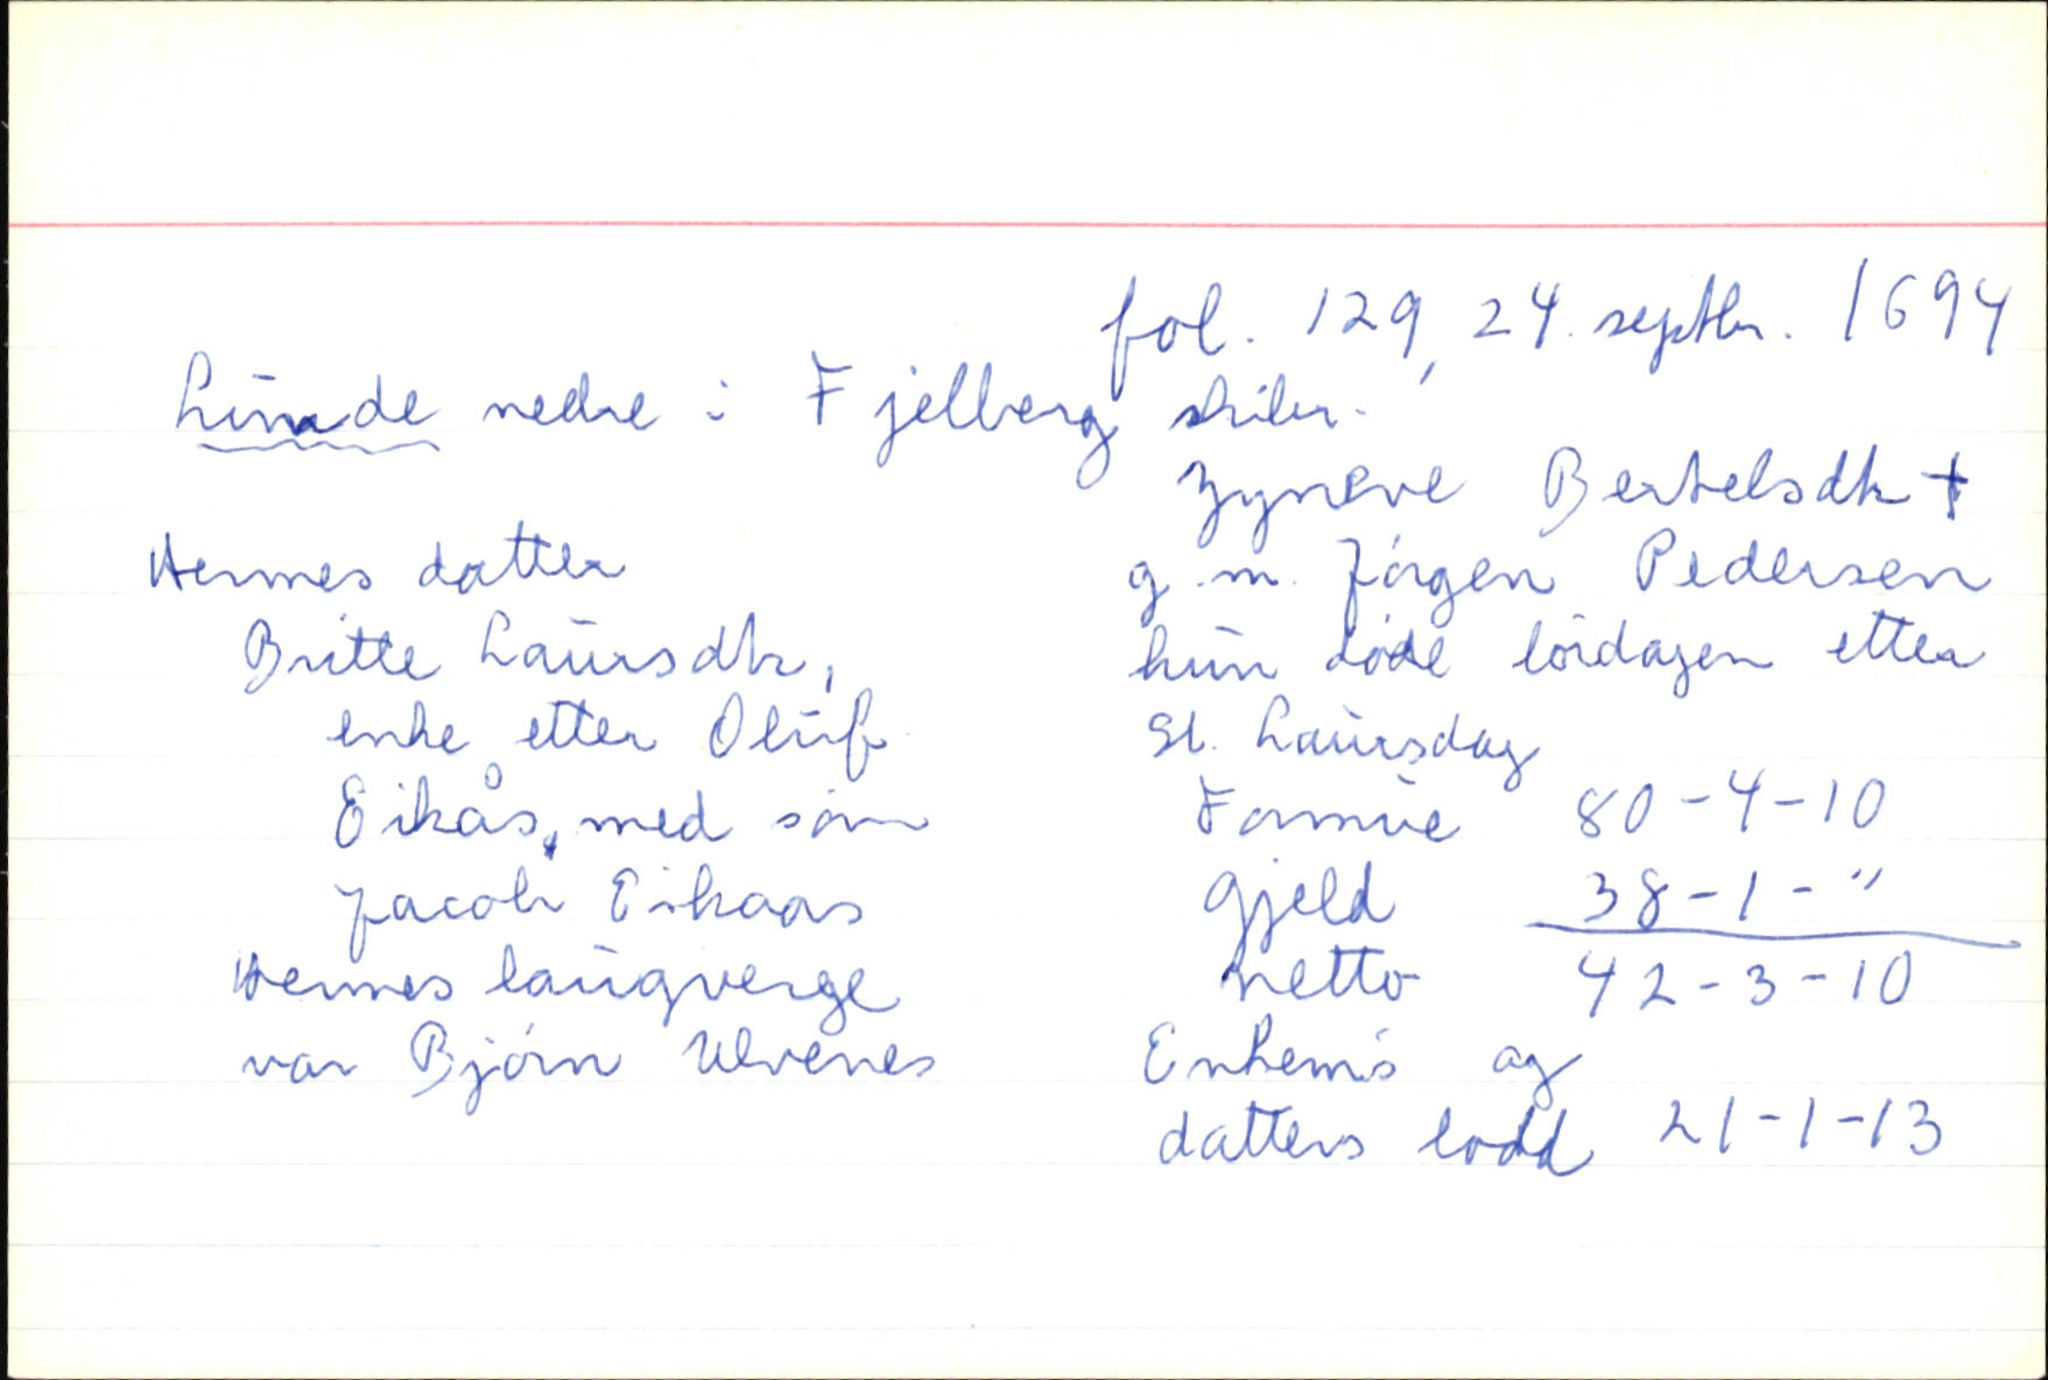 fol. 129, 24. septbr. 1694
Linde nedre i Fjelberg skiber.
Zyneve Bertelsdtr +
g.m. Jørgen Pedersen
hun døde lørdagen etter
St. Laursdag
Formue 80-4-10
Gjeld 38-1-"
netto 42-3-10
Enkem's og
datters lodd 21-1-13
Hennes datter
Britte Laursdtr,
enke etter Oluf
Eikås, med søn
Jacob Eikaas
Hennes laugverge
var Bjørn Ulvenes